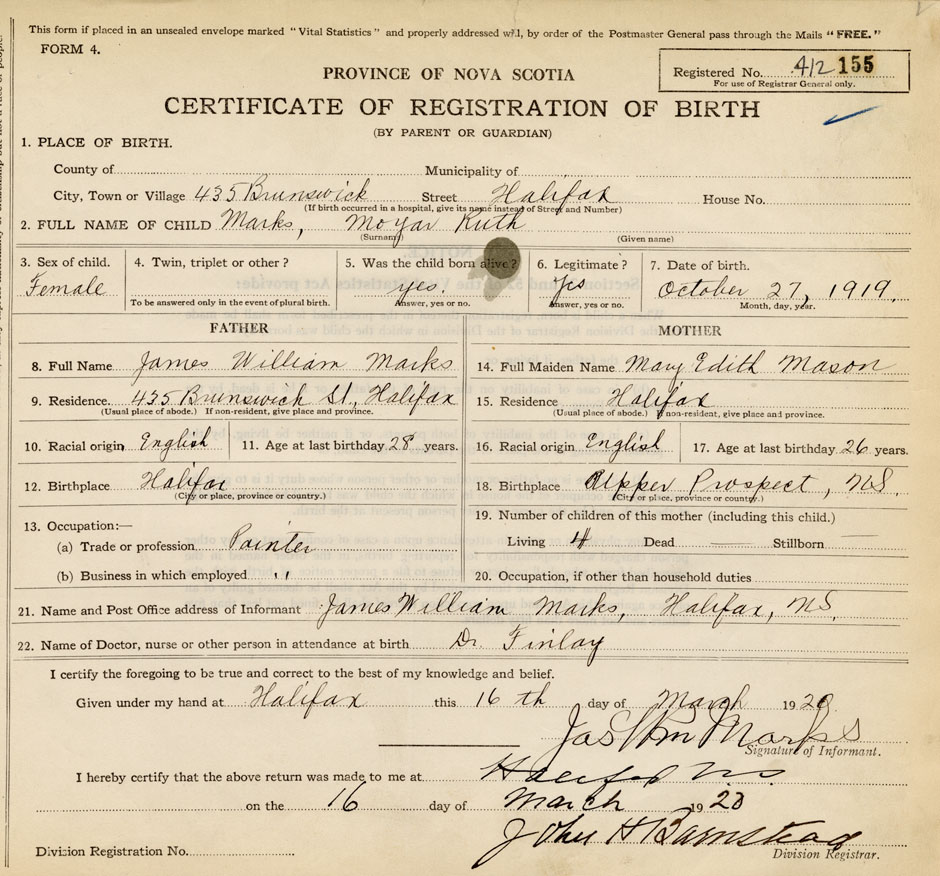 This form if placed in an unsealed envelope marked "Vital Statistics" and properly addressed will, by order of the Postmaster General pass through the Mails "FREE."
FORM 4.
Registered No. 412 155
For use of Registrar General only.
PROVINCE OF NOVA SCOTIA
CERTIFICATE OF REGISTRATION OF BIRTH
(BY PARENT OR GUARDIAN)
1. PLACE OF BIRTH.
County of Municipality of
City, Town or Village 435 Brunswick Street Halifax House No.
(If birth occurred in a hospital, give its name instead of Street and Number)
2. FULL NAME OF CHILD Marks, Moyar Ruth
(Surname) (Given name)
3. Sex of child. 4. Twin, triplet or other? 5. Was the child born alive? 6. Legitimate? 7. Date of birth.
Female yes. yes October 27, 1919.
To be answered only in the event of plural birth. Answer, yes or no. Answer, yes or no. Month, day, year.
FATHER MOTHER
8. Full Name James William Marks 14. Full Maiden Name Mary Edith Mason
9. Residence. 435 Brunswich St., Halifax 15. Residence Halifax
(Usual place of abode.) If non-resident, give place and province. (Usual place of abode.) If non-resident, give place and province.
10. Racial origin English 11. Age at last birthday 28 years. 16. Racial origin English 17. Age at last birthday 26 years.
12. Birthplace Halifax 18. Birthplace Upper Prospect, NS.
(City or place, province or country.) (City or place, province or country.)
13. Occupation:— 19. Number of children of this mother (including this child.)
(a) Trade or profession Painter Living 4 Dead — Stillborn —
(b) Business in which employed " 20. Occupation, if other than household duties
21. Name and Post Office address of Informant James William Marks, Halifax, NS,
22. Name of Doctor, nurse or other person in attendance at birth Dr. Finlay
I certify the foregoing to be true and correct to the best of my knowledge and belief.
Given under my hand at Halifax this 16 th day of March 1920
Jas Wm Marks
Signature of Informant.
I hereby certify that the above return was made to me at Halifax N.S.
on the 16 day of March 1920
John H Barnstead
Division Registration No. Division Registrar.